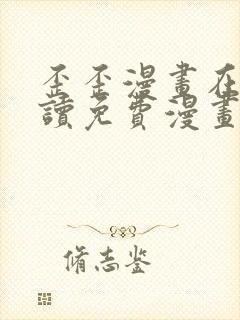 歪歪漫畫在
讀免費漫畫
脩志鉴